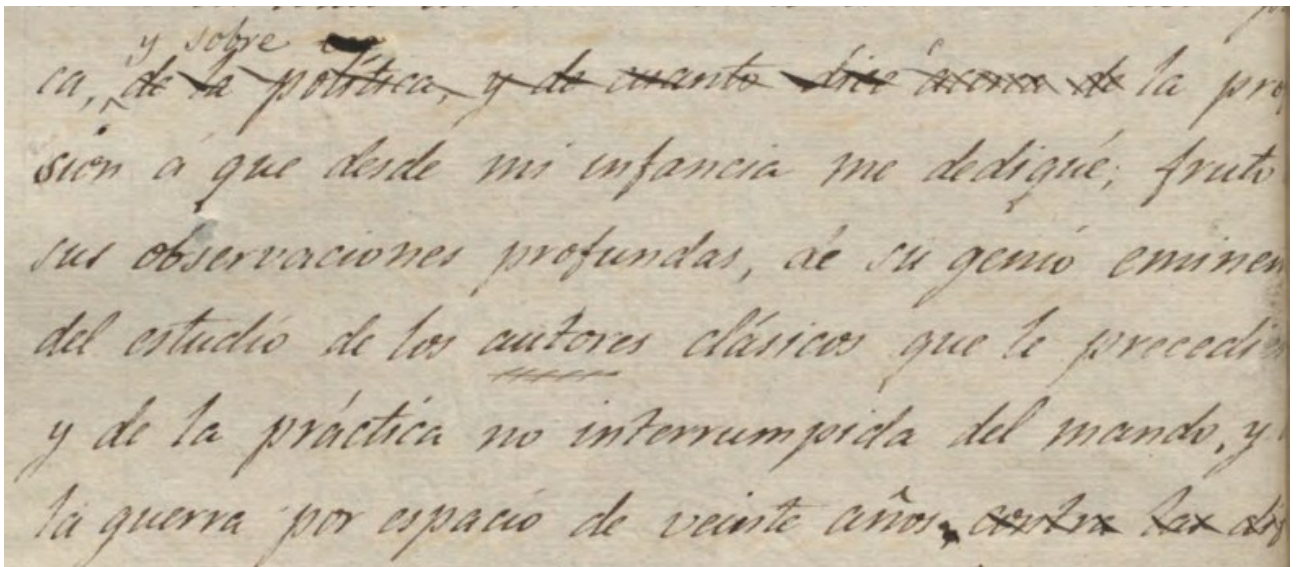 y sobre
ca, de la política, y de cuanto dice acerca de la pro
sion á que desde mi infancia me dediqué; fruto
sus observaciones profundas, de su genio eminen
del estudio de los autores clásicos que le precedie
y de la práctica no interrumpida del mando, y
la guerra por espacio de veinte años, contra las dis